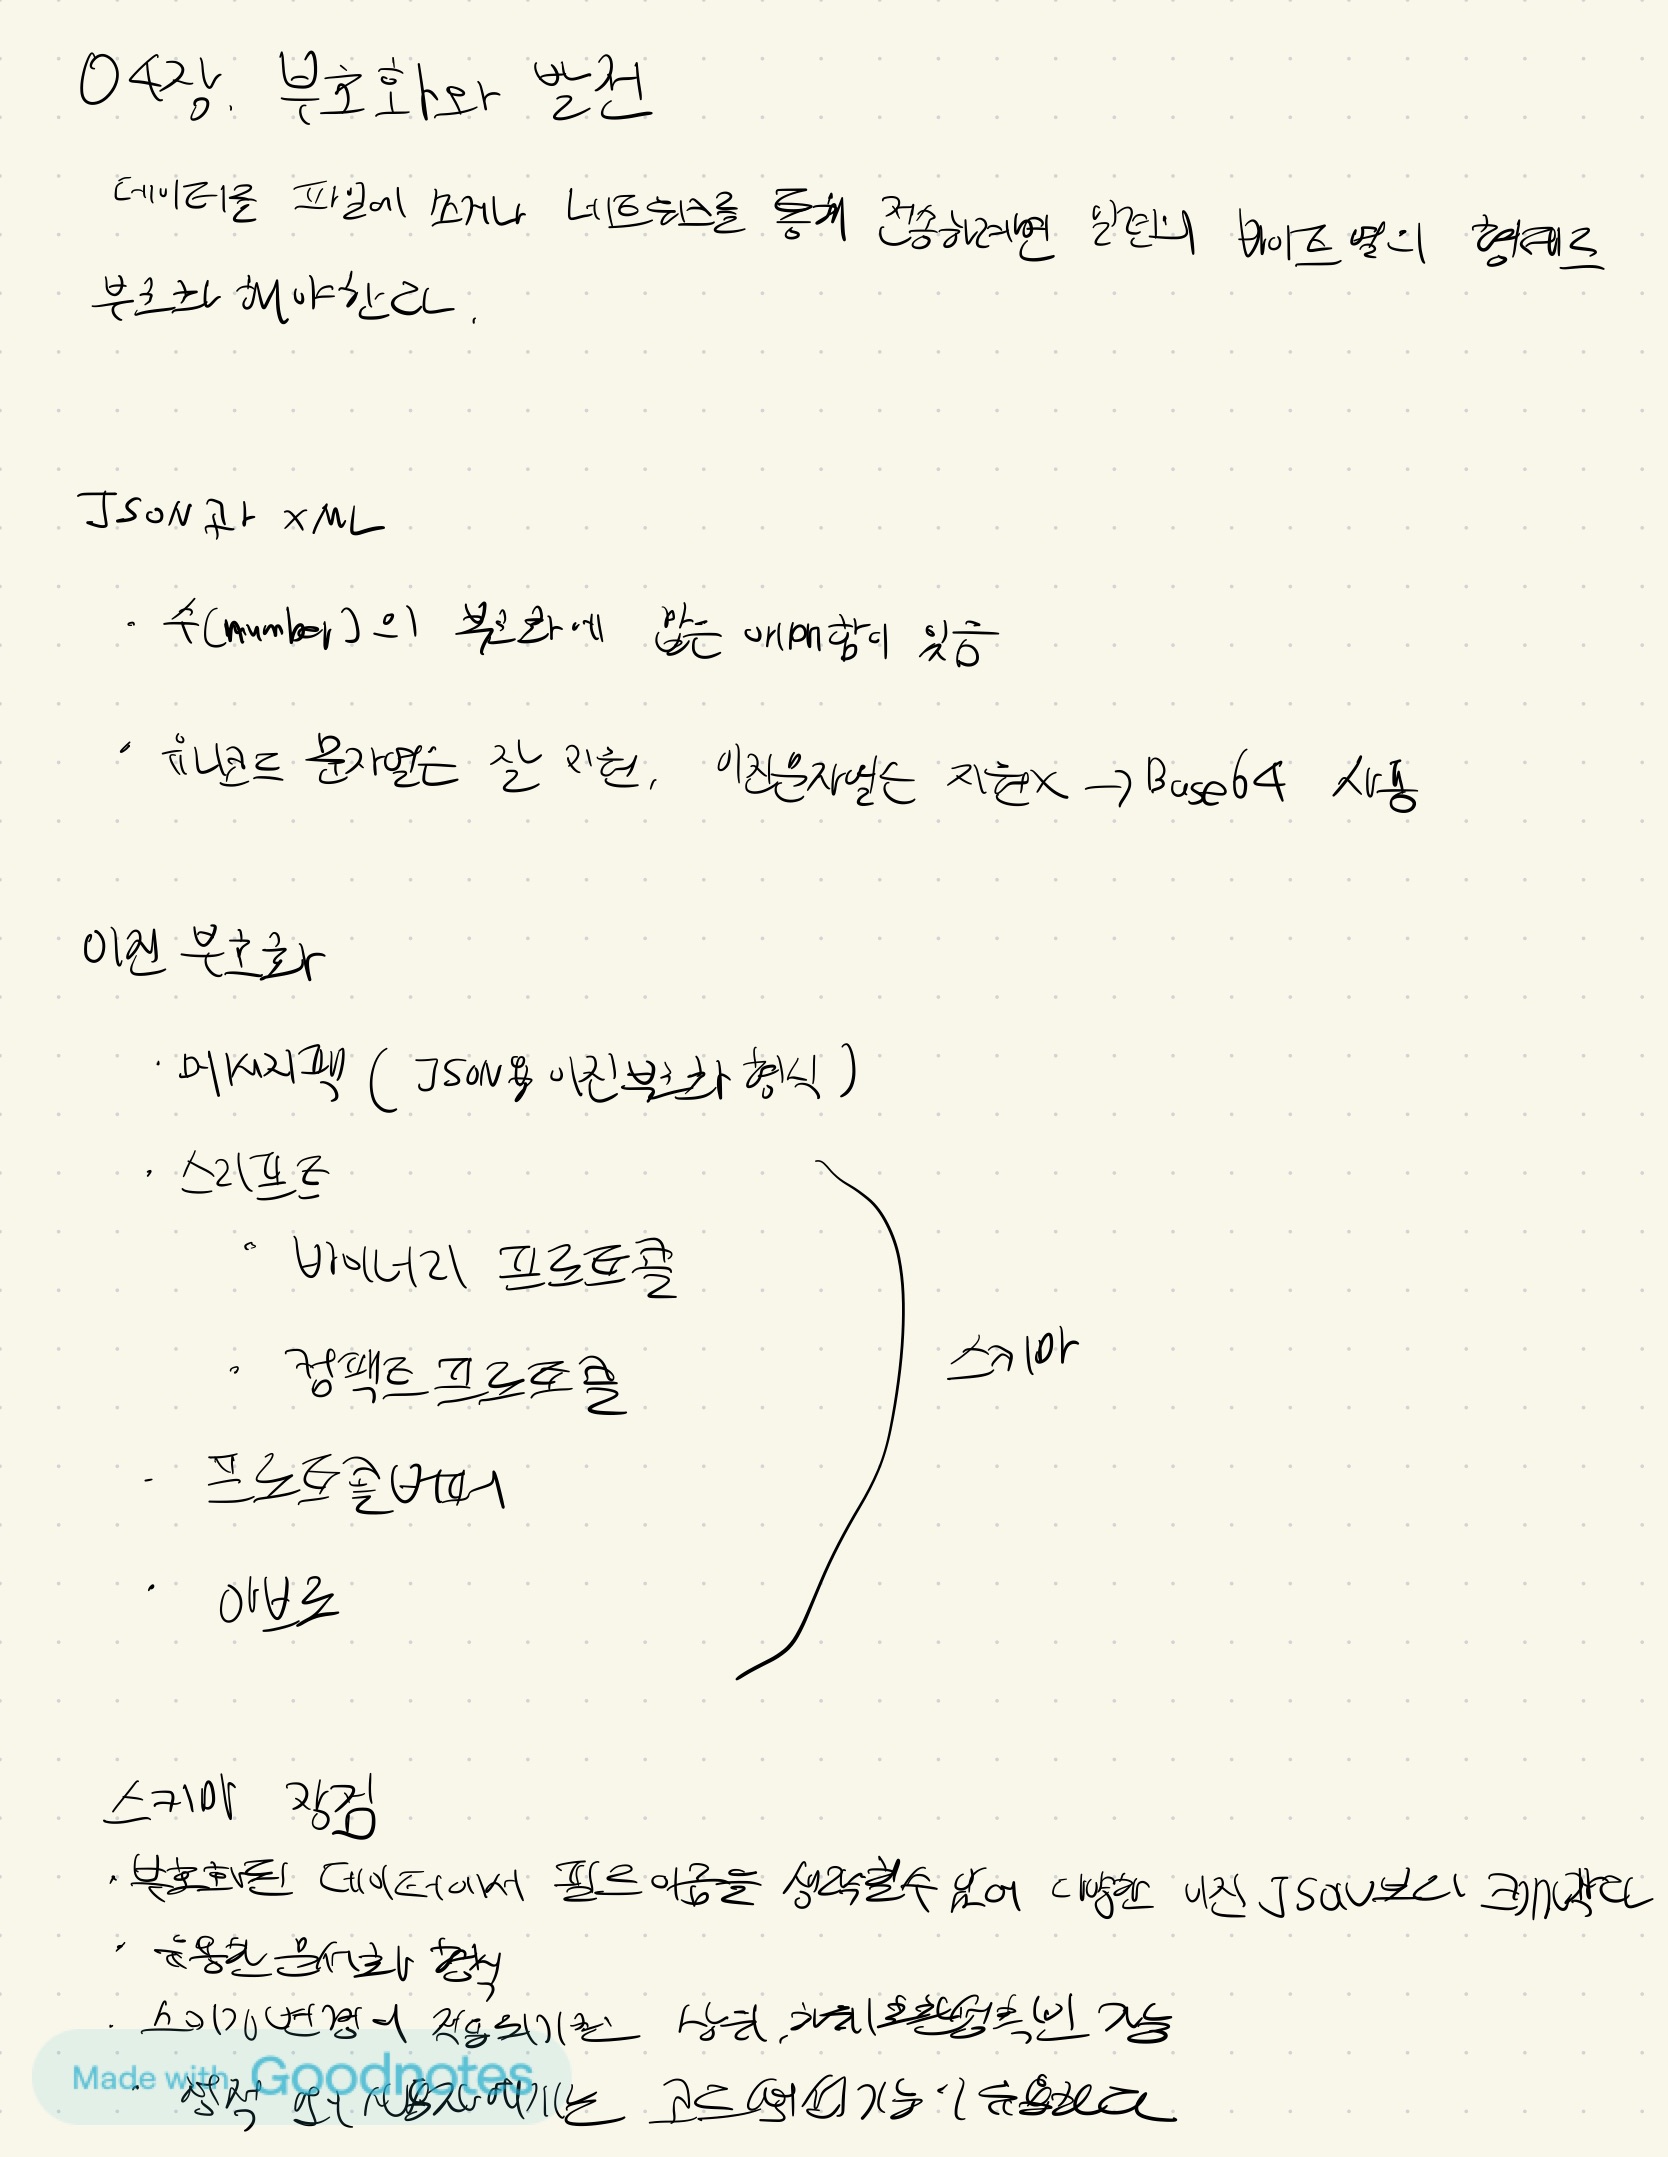 04장. 부호화와 발전
데이터를 파일에 쓰거나 네트워크를 통해 전송하려면 일련의 바이트열의 형태로
부호화 해야한다.
JSON과 XML
· 수(number)의 부호화에 많은 애매함이 있음
· 유니코드 문자열은 잘 지원, 이진문자열은 지원X → Base64 사용
이진 부호화
· 메시지팩 ( JSON용 이진부호화 형식 )
· 스리프트
· 바이너리 프로토콜
· 컴팩트 프로토콜
스키마
· 프로토콜버퍼
· 아브로
스키마 장점
· 부호화된 데이터에서 필드 이름을 생략할수 있어 다양한 이진 JSON보다 크기가 작다
· 유용한 문서화 형식
· 변경이 적용되기전 상위, 하위 호환성 가능
Made with Goodnotes
· 정적 언어 사용자에게는 코드 생성 기능이 유용하다